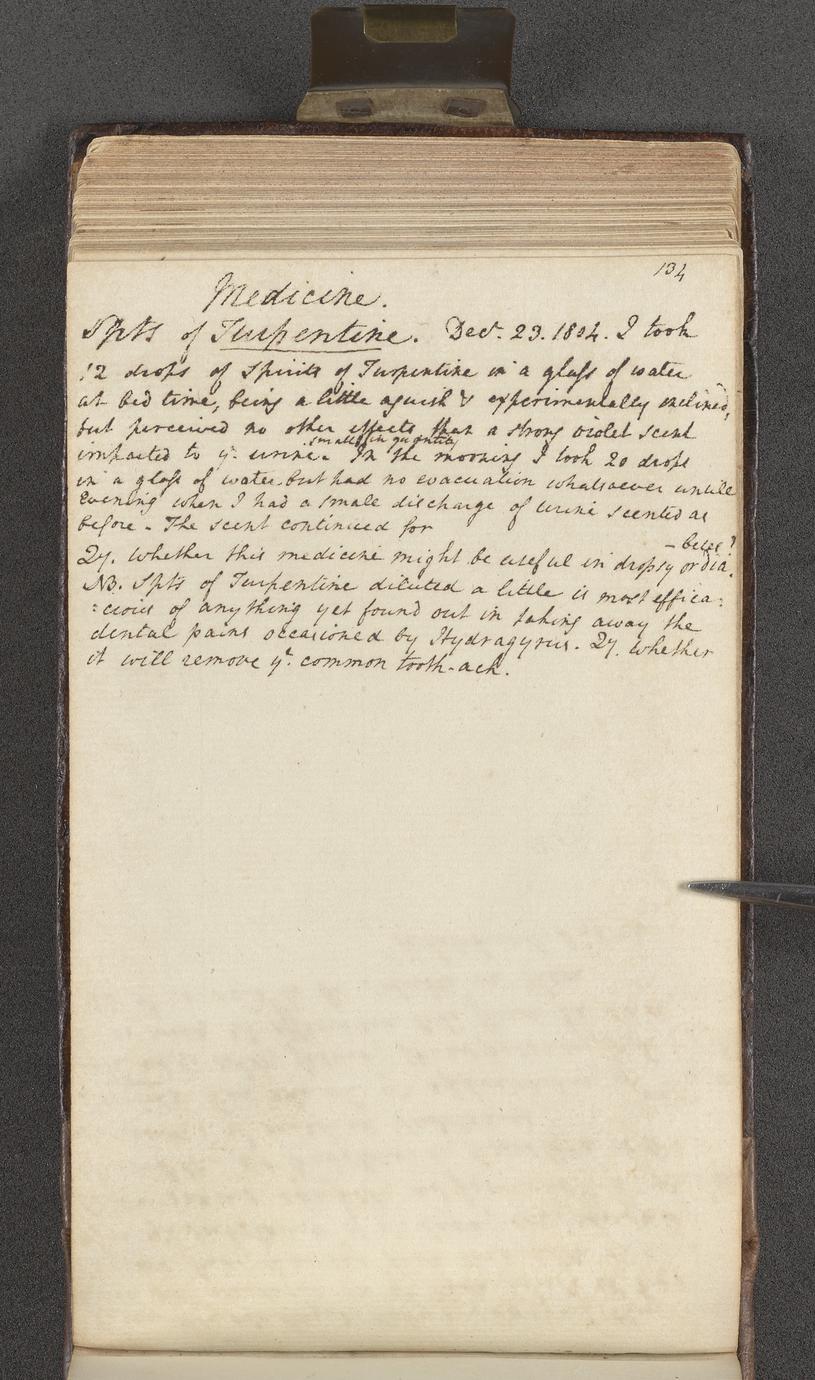 134
Medicine.
Spts of Turpentine. Decr. 23. 1804. I took
12 drops of Spirits of Turpentine in a glass of water
at bed time, being a little aguish & experimentally inclined,
but perceived no other effects than a strong violet scent
imparted to ye. urine. small in quantity In the morning I took 20 drops
in a glass of water but had no evacuation whatsoever untill
Evening when I had a small discharge of urine scented as
before. The scent continued for
Qy. whether this medicine might be useful in dropsy or dia:
- betes?
NB. Spts of Turpentine diluted a little is most effica:
:cious of anything yet found out in taking away the
dental pains occasioned by Hydragyrus. Qy. whether
it will remove ye. common tooth-ach.